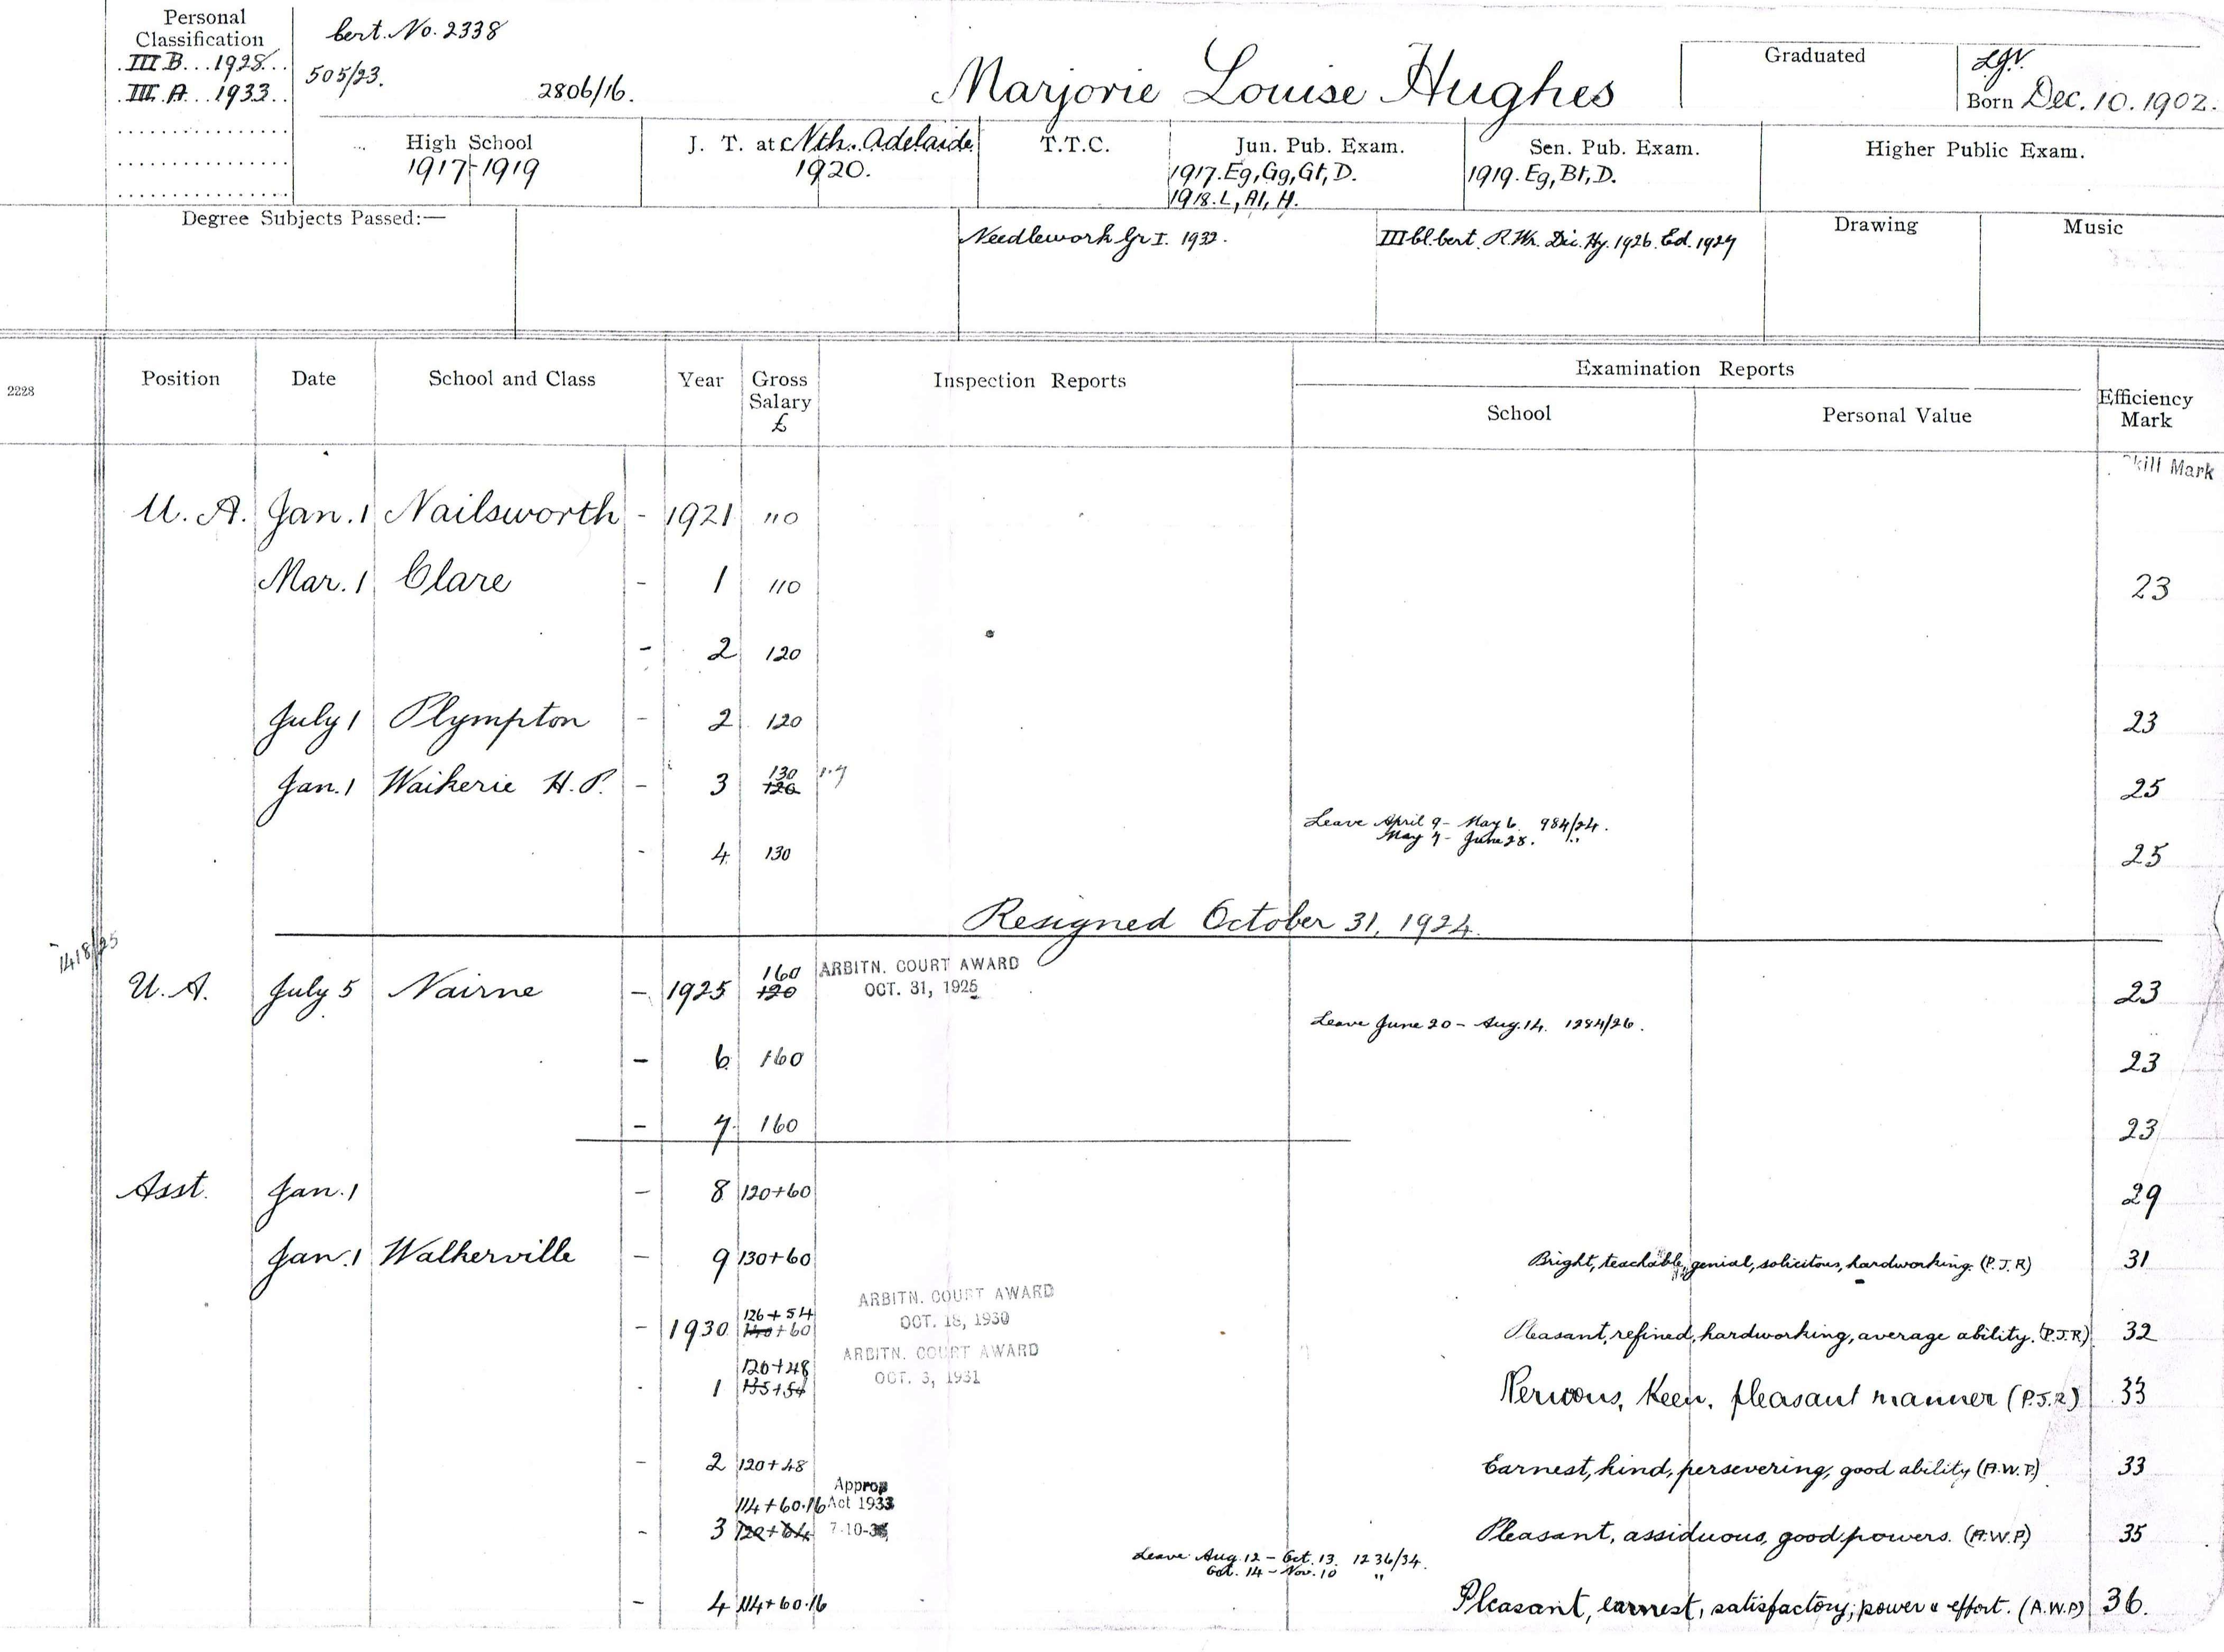 Personal
Classification
III B...1928...
III A...1933...
Cert. No. 2338
505/23.
2806/16.
Marjorie Louise Hughes
Graduated
Born Dec. 10. 1902.
High School
1917-1919
J. T. at Nth. Adelaide
1920.
T.T.C.
Jun. Pub. Exam.
1917. Eg, Gg, Gt, D.
1918. L, Al, H.
Sen. Pub. Exam.
1919. Eg, Bt, D.
Higher Public Exam.
Degree Subjects Passed:—
Needlework Gr I. 1932.
III Cl. Cert. R. Wr. Dic. Hy. 1926. Ed. 1927
Drawing
Music
2228
Position
Date
School and Class
Year
Gross
Salary
£
Inspection Reports
Examination Reports
School
Personal Value
Efficiency
Mark
Skill Mark
U. A. Jan. 1 Nailsworth - 1921 110
Mar. 1 Clare - 1 110 23
- 2 120
July 1 Plympton - 2 120 23
130
Jan. 1 Waikerie H. P. - 3 120 1.7 25
Leave April 9 - May 6. 984/24.
May 7 - June 28. "
- 4 130 25
Resigned October 31, 1924.
1418/25
160 ARBITN. COURT AWARD
U. A. July 5 Nairne - 1925 120 OCT. 31, 1925 23
Leave June 20 - Aug. 14. 1284/26.
- 6 160 23
- 7 160 23
Asst. Jan. 1 - 8 120+60 29
Jan. 1 Walkerville - 9 130+60 Bright, teachable, genial, solicitous, hardworking. (P.J.R) 31
ARBITN. COURT AWARD
126+54 OCT. 18, 1930
- 1930 140+60 Pleasant, refined, hardworking, average ability. (P.J.R) 32
ARBITN. COURT AWARD
120+48 OCT. 3, 1931
- 1 135+54 Nervous, keen, pleasant manner (P.J.R) 33
- 2 120+48 Earnest, kind, persevering, good ability (A.W.P.) 33
Approp
114+60.16 Act 1933
- 3 7-10-33 Pleasant, assiduous, good powers. (A.W.P) 35
Leave Aug. 12 - Oct. 13. 1236/34.
Oct. 14 - Nov. 10 "
- 4 114+60.16 Pleasant, earnest, satisfactory; power & effort. (A.W.P) 36.